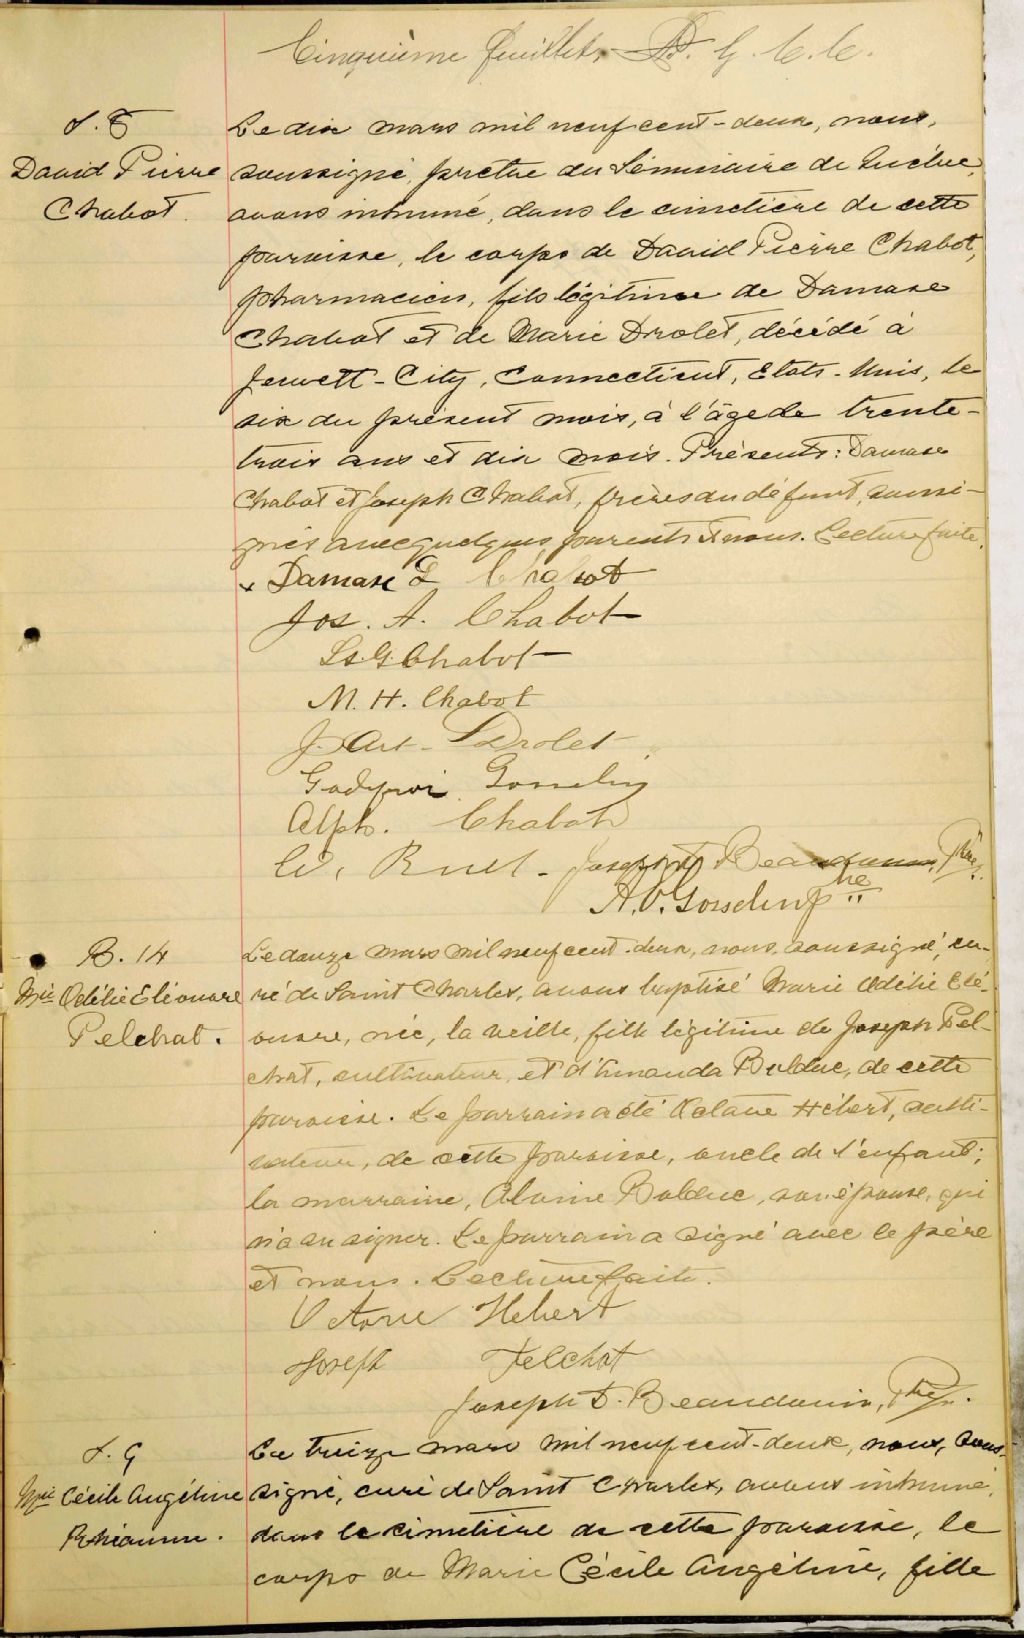 Cinquième feuillet. D. G. C. C.
S. 8
David Pierre
Chabot.
Le dix mars mil neuf cent-deux, nous,
soussigné, prêtre du Séminaire de Québec,
avons inhumé, dans le cimetière de cette
paroisse, le corps de David Pierre Chabot,
pharmacien, fils légitime de Damase
Chabot et de Marie Drolet, décédé à
Jewett-City, Connecticut, Etats-Unis, le
six du présent mois, à l'âge de trente-
trois ans et dix mois. Présents: Damase
Chabot et Joseph Chabot, frères du défunt, soussi-
gnés avec quelques parents et nous. Lecture faite.
Damase D Chabot
Jos. A. Chabot
Ls. G. Chabot
M. H. Chabot
J. Art. Drolet
Godfroi Gosselin
Alph. Chabot
W. Ruel - Joseph D. Beaudouin, Ptre.
A. O. Gosselin ptre
B. 14
Mie Odélie Eléonore
Pelchat.
Le douze mars mil neuf cent-deux, nous, soussigné, cu-
ré de Saint Charles, avons baptisé Marie Odélie Elé-
onore, née, la veille, fille légitime de Joseph Pel-
chat, cultivateur, et d'Amanda Bolduc, de cette
paroisse. Le parrain a été Octave Hébert, culti-
vateur, de cette paroisse, oncle de l'enfant;
la marraine, Bolduc, son épouse, qui
n'a su signer. Le parrain a signé avec le père
et nous. Lecture faite.
Octave Hebert
Joseph Pelchat
Joseph D. Beaudouin, Ptre.
S. 9
Mie Cécile Angéline
Le treize mars mil neuf cent-deux, nous, sous-
signé, curé de Saint Charles, avons inhumé,
dans le cimetière de cette paroisse, le
corps de Marie Cécile Angéline, fille